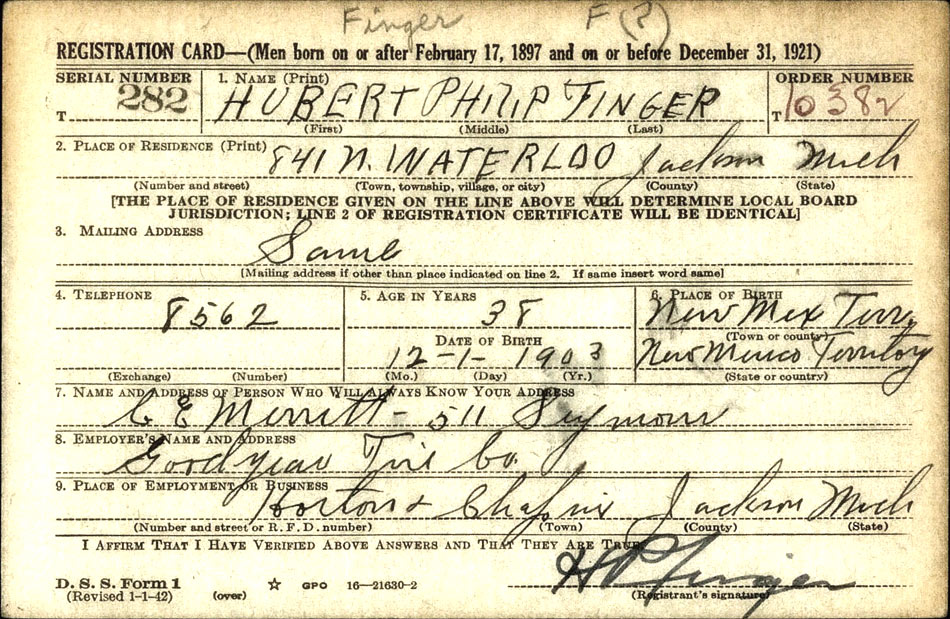 Finger F(?)
REGISTRATION CARD—(Men born on or after February 17, 1897 and on or before December 31, 1921)
SERIAL NUMBER 1. NAME (Print) ORDER NUMBER
T 282 HUBERT PHILIP FINGER T 10382
(First) (Middle) (Last)
2. PLACE OF RESIDENCE (Print) 841 N. WATERLOO Jackson Mich
(Number and street) (Town, township, village, or city) (County) (State)
[THE PLACE OF RESIDENCE GIVEN ON THE LINE ABOVE WILL DETERMINE LOCAL BOARD
JURISDICTION; LINE 2 OF REGISTRATION CERTIFICATE WILL BE IDENTICAL]
3. MAILING ADDRESS
Same
[Mailing address if other than place indicated on line 2. If same insert word same]
4. TELEPHONE 5. AGE IN YEARS 6. PLACE OF BIRTH
8562 38 New Mex Terr.
DATE OF BIRTH (Town or county)
12-1-1903 New Mexico Territory
(Exchange) (Number) (Mo.) (Day) (Yr.) (State or country)
7. NAME AND ADDRESS OF PERSON WHO WILL ALWAYS KNOW YOUR ADDRESS
C E Merritt - 511 Seymour
8. EMPLOYER'S NAME AND ADDRESS
Goodyear Tire Co.
9. PLACE OF EMPLOYMENT OR BUSINESS
Horton & Chapin Jackson Mich
(Number and street or R. F. D. number) (Town) (County) (State)
I AFFIRM THAT I HAVE VERIFIED ABOVE ANSWERS AND THAT THEY ARE TRUE.
H P Finger
D. S. S. Form 1 ☆ GPO 16—21630-2
(Revised 1-1-42) (over) (Registrant's signature)